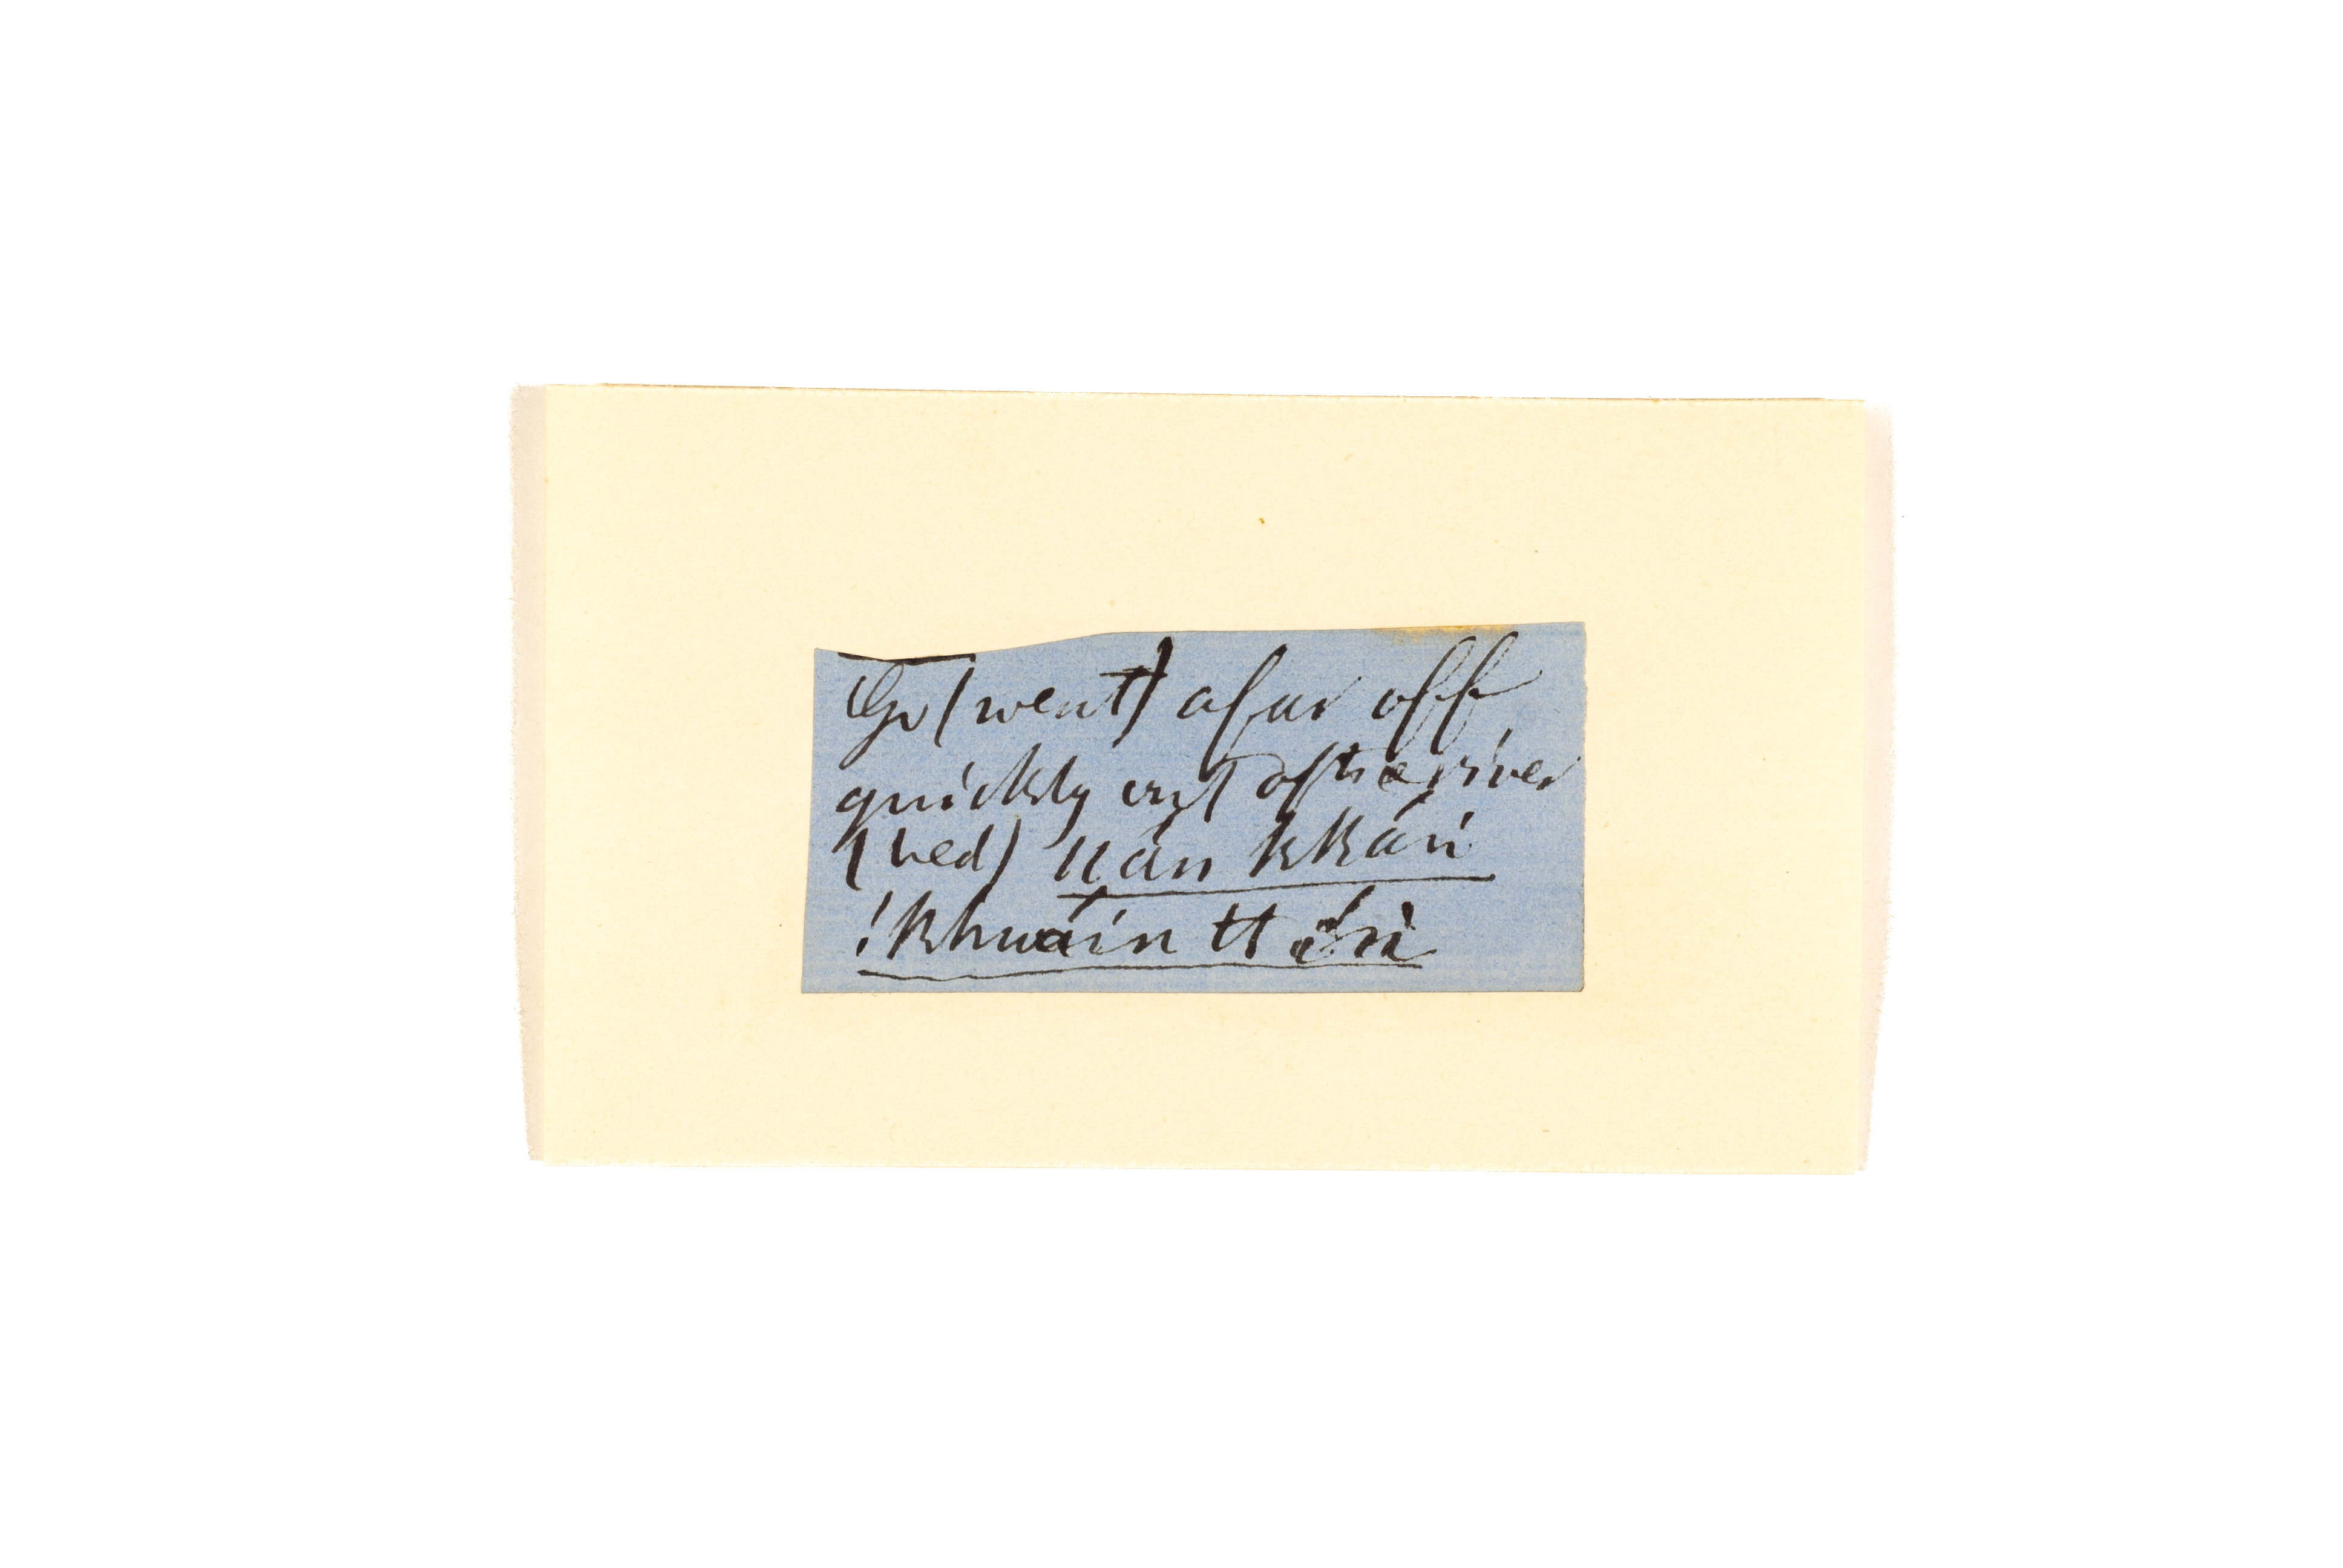 Go (went) afar off
quickly out of the river
(bed) ǁán kkăn
!khwáin